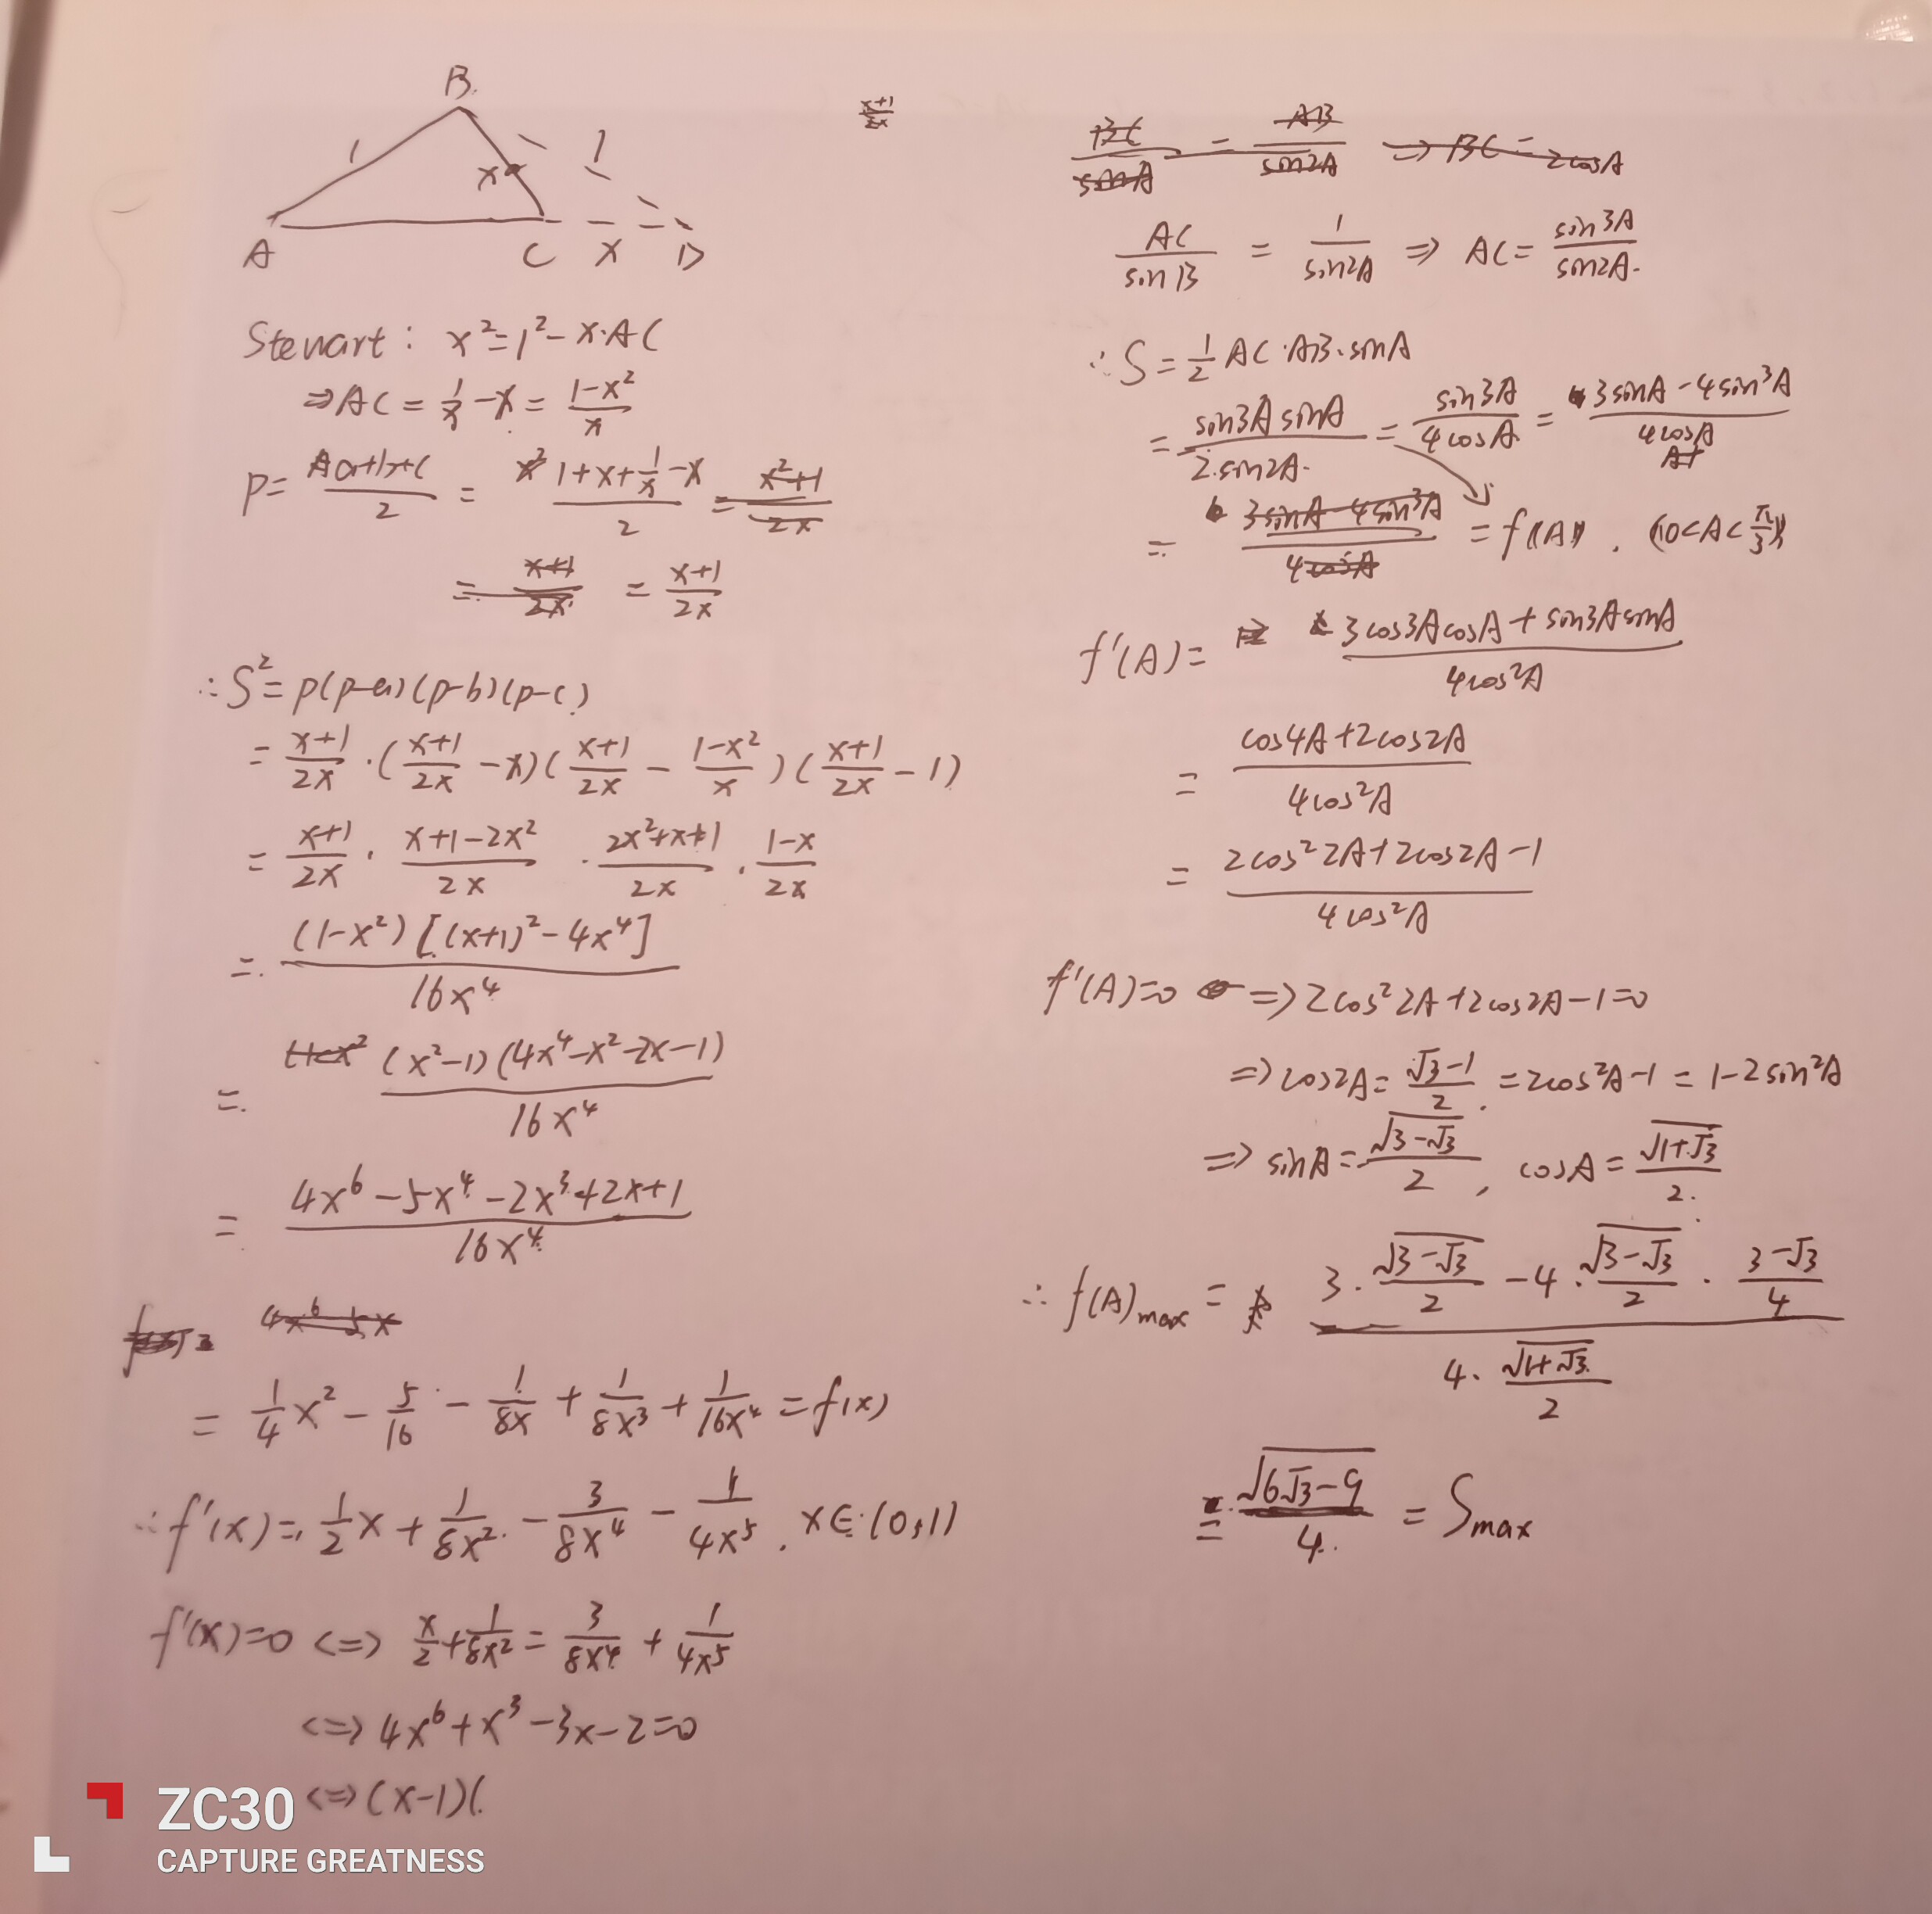 B
1
1
x
A
C
x
D
Stewart: x²=1²-x·AC
⇒AC=1/x-x=(1-x²)/x
p=(a+b+c)/2=(1+x+1/x-x)/2=(x²+1)/2x
=(x+1)/2x=(x+1)/2x
∴S²=p(p-a)(p-b)(p-c)
=(x+1)/2x·((x+1)/2x-x)((x+1)/2x-(1-x²)/x)((x+1)/2x-1)
=(x+1)/2x·(x+1-2x²)/2x·(2x²+x-1)/2x·(1-x)/2x
=(1-x²)[(x+1)²-4x⁴]/16x⁴
=(x²-1)(4x⁴-x²-2x-1)/16x⁴
=(4x⁶-5x⁴-2x³+2x+1)/16x⁴
4x⁶-5x
=1/4x²-5/16-1/8x+1/8x³+1/16x⁴=f(x)
∴f'(x)=1/2x+1/8x²-3/8x⁴-1/4x⁵, x∈(0,1)
f'(x)=0⇔x/2+1/8x²=3/8x⁴+1/4x⁵
⇔4x⁶+x³-3x-2=0
⇔(x-1)(
(x+1)/2x
BC/sinA=AB/sin2A⇒BC=/2cosA
AC/sinB=1/sin2A⇒AC=sin3A/sin2A
∴S=1/2AC·AB·sinA
=sin3AsinA/2·sin2A=sin3A/4cosA=(3sinA-4sin³A)/4cosA
=(3sinA-4sin³A)/4cosA=f(A), (0<A<π/3)
f'(A)=(3cos3AcosA+sin3AsinA)/4cos²A
=(cos4A+2cos2A)/4cos²A
=(2cos²2A+2cos2A-1)/4cos²A
f'(A)=0⇒2cos²2A+2cos2A-1=0
⇒cos2A=(√3-1)/2=2cos²A-1=1-2sin²A
⇒sinA=√(3-√3)/2, cosA=√(1+√3)/2
∴f(A)max=(3·√(3-√3)/2-4·√(3-√3)/2·(3-√3)/4)/(4·√(1+√3)/2)
=√(6√3-9)/4=Smax
ZC30
CAPTURE GREATNESS